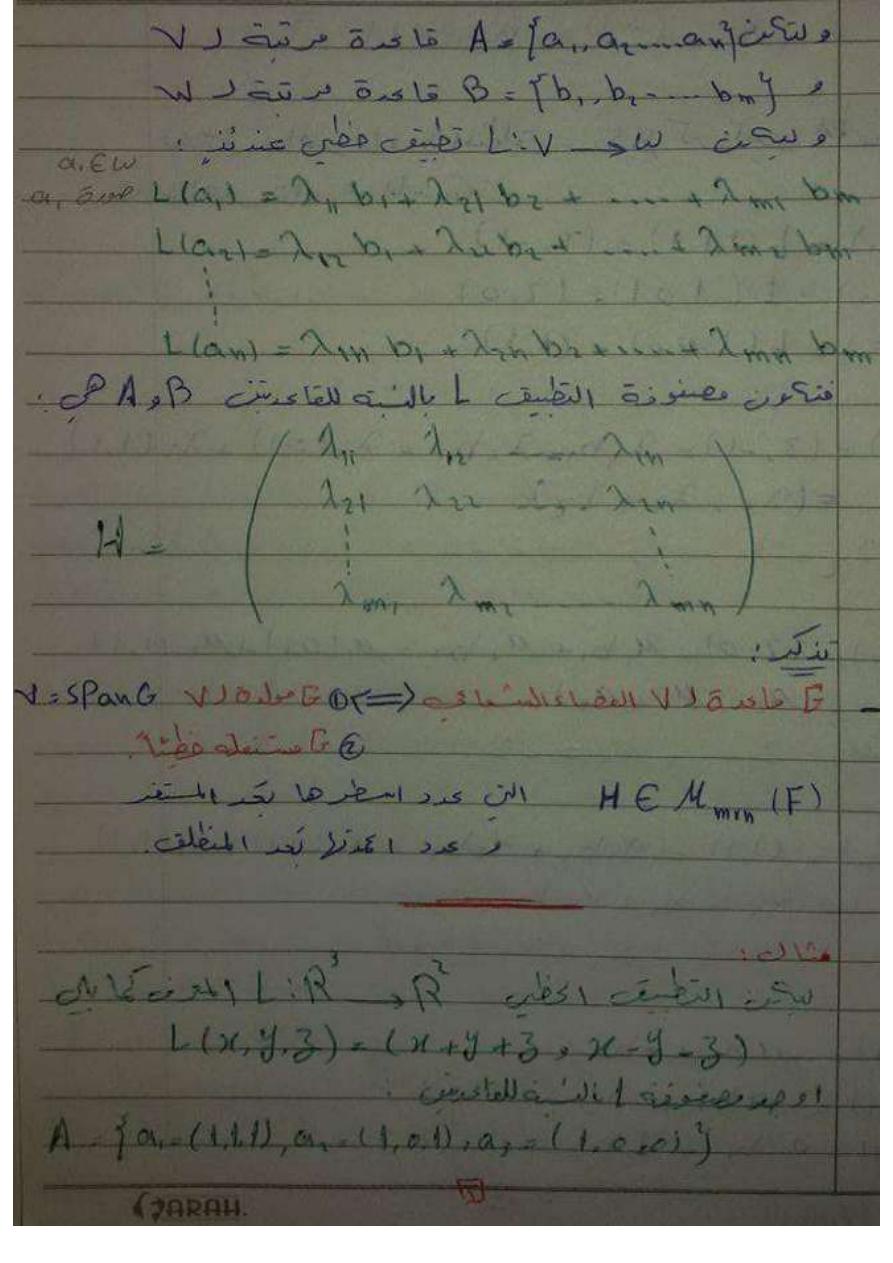 ولتكن A = {a₁, a₂, .... aₙ} قاعدة مرتبة لـ V
و B = {b₁, b₂ .... bₘ} قاعدة مرتبة لـ W
وليكن L: V → W تطبيق خطي عندئذٍ :
a₁ ∈ W
صورة a₁ L(a₁) = λ₁₁ b₁ + λ₂₁ b₂ + ..... + λₘ₁ bₘ
L(a₂) = λ₁₂ b₁ + λ₂₂ b₂ + ..... + λₘ₂ bₘ
L(aₙ) = λ₁ₙ b₁ + λ₂ₙ b₂ + ..... + λₘₙ bₘ
فتكون مصفوفة التطبيق L بالنسبة للقاعدتين B و A هي :
λ₁₁ λ₁₂ ... λ₁ₙ
λ₂₁ λ₂₂ ... λ₂ₙ
H =
λₘ₁ λₘ₂ ... λₘₙ
تذكر :
G قاعدة لـ V الفضاء الشعاعي <=> ① G مولدة لـ V V = Span G
② G مستقلة خطياً.
H ∈ Mₘₓₙ (F) التي عدد اسطرها بُعد المستقر
و عدد اعمدتها بُعد المنطلق.
مثال :
ليكن التطبيق الخطي L: R³ → R² المعرف كما يلي
L(x, y, z) = (x + y + z , x - y - z)
اوجد مصفوفة L بالنسبة للقاعدتين :
A = {a₁ = (1,1,1), a₂ = (1,0,1), a₃ = (1,0,0)}
JARAH.